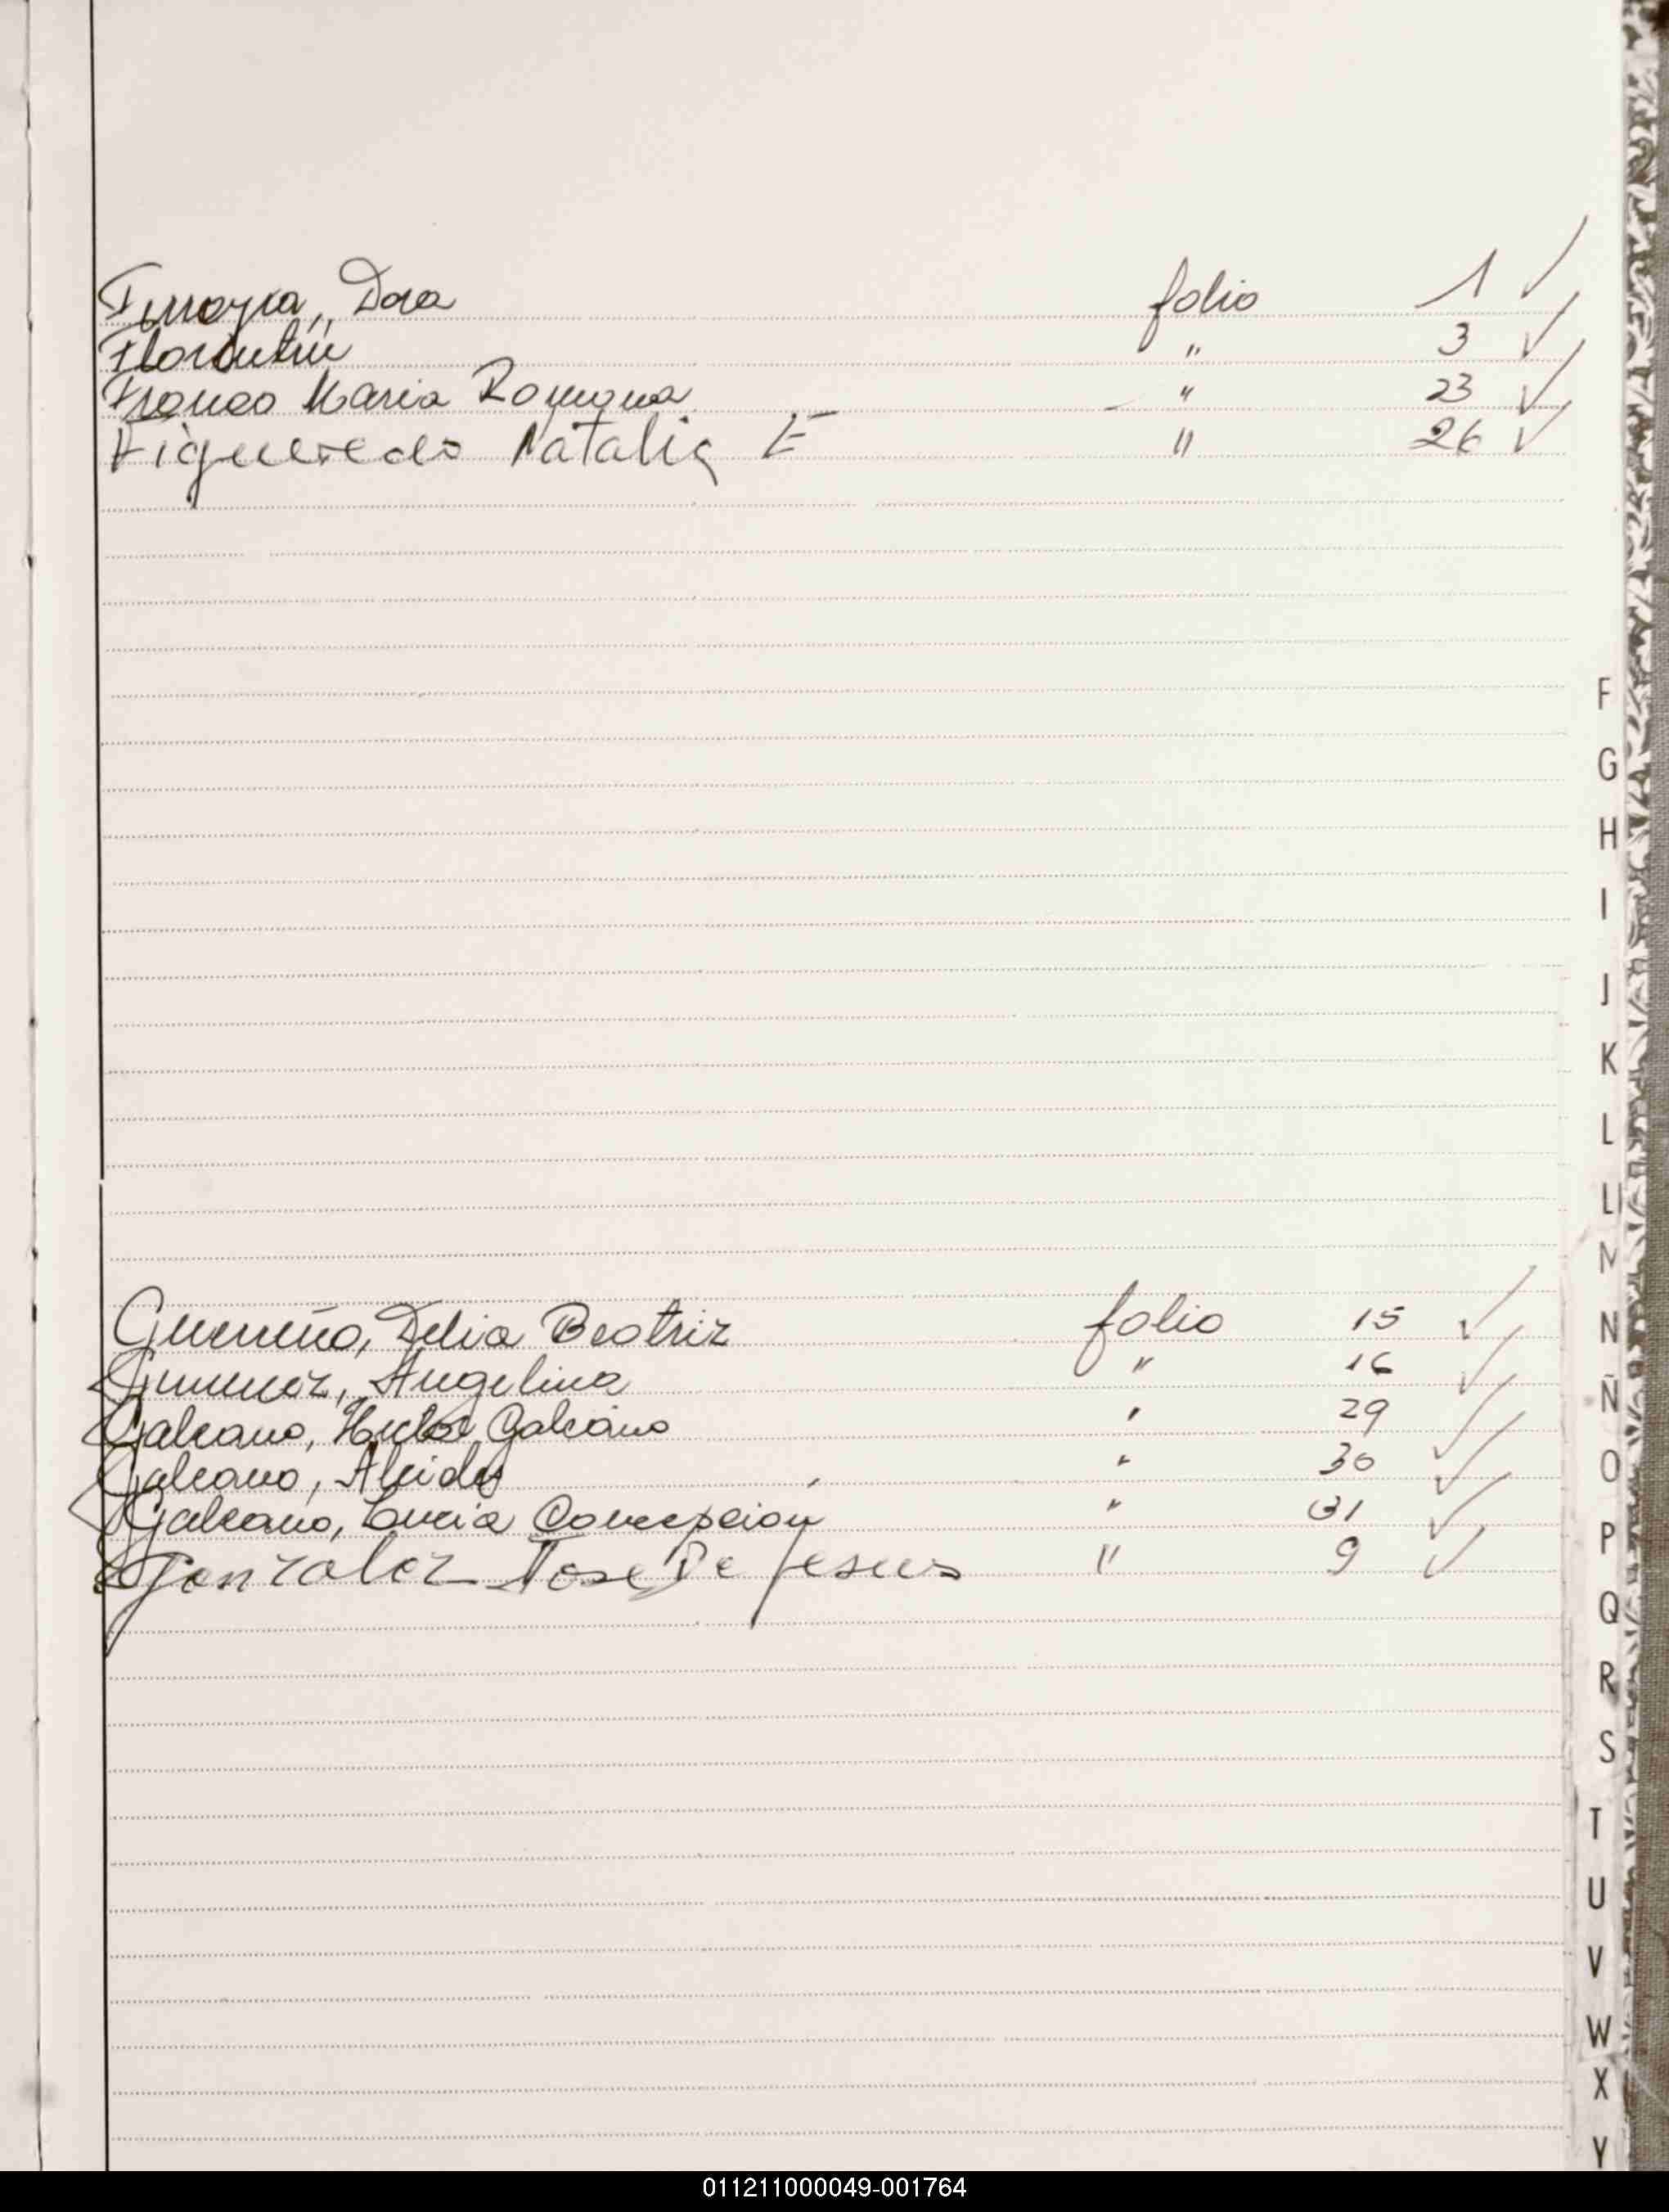 Ferreyra, Dora folio 1 ✓
Florentin " 3 ✓
Franco Maria Romona " 23 ✓
Figueredo Natalia E " 26 ✓
Guerreño, Delia Beatriz folio 15 ✓
Gimenez, Angelina " 16 ✓
Galeano, Hector Galeano " 29 ✓
Galeano, Alcides " 30 ✓
Galeano, Lucia Concepción " 31 ✓
Gonzalez Jose De Jesus " 9 ✓
F
G
H
I
J
K
L
Ll
M
N
Ñ
O
P
Q
R
S
T
U
V
W
X
Y
011211000049-001764